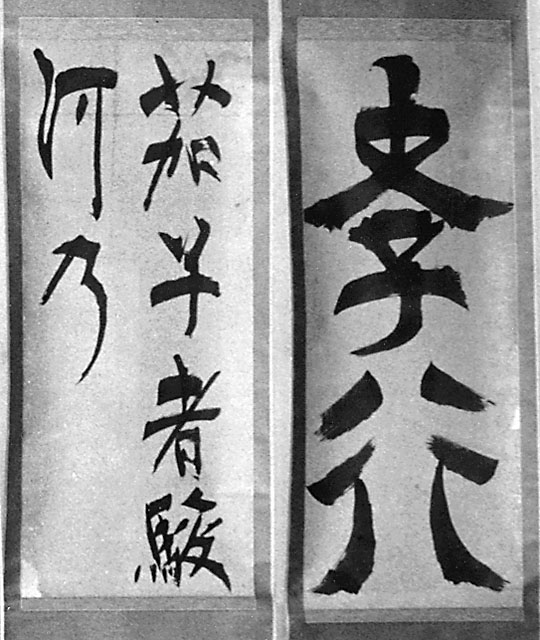 孝行
茄子者駿
河乃